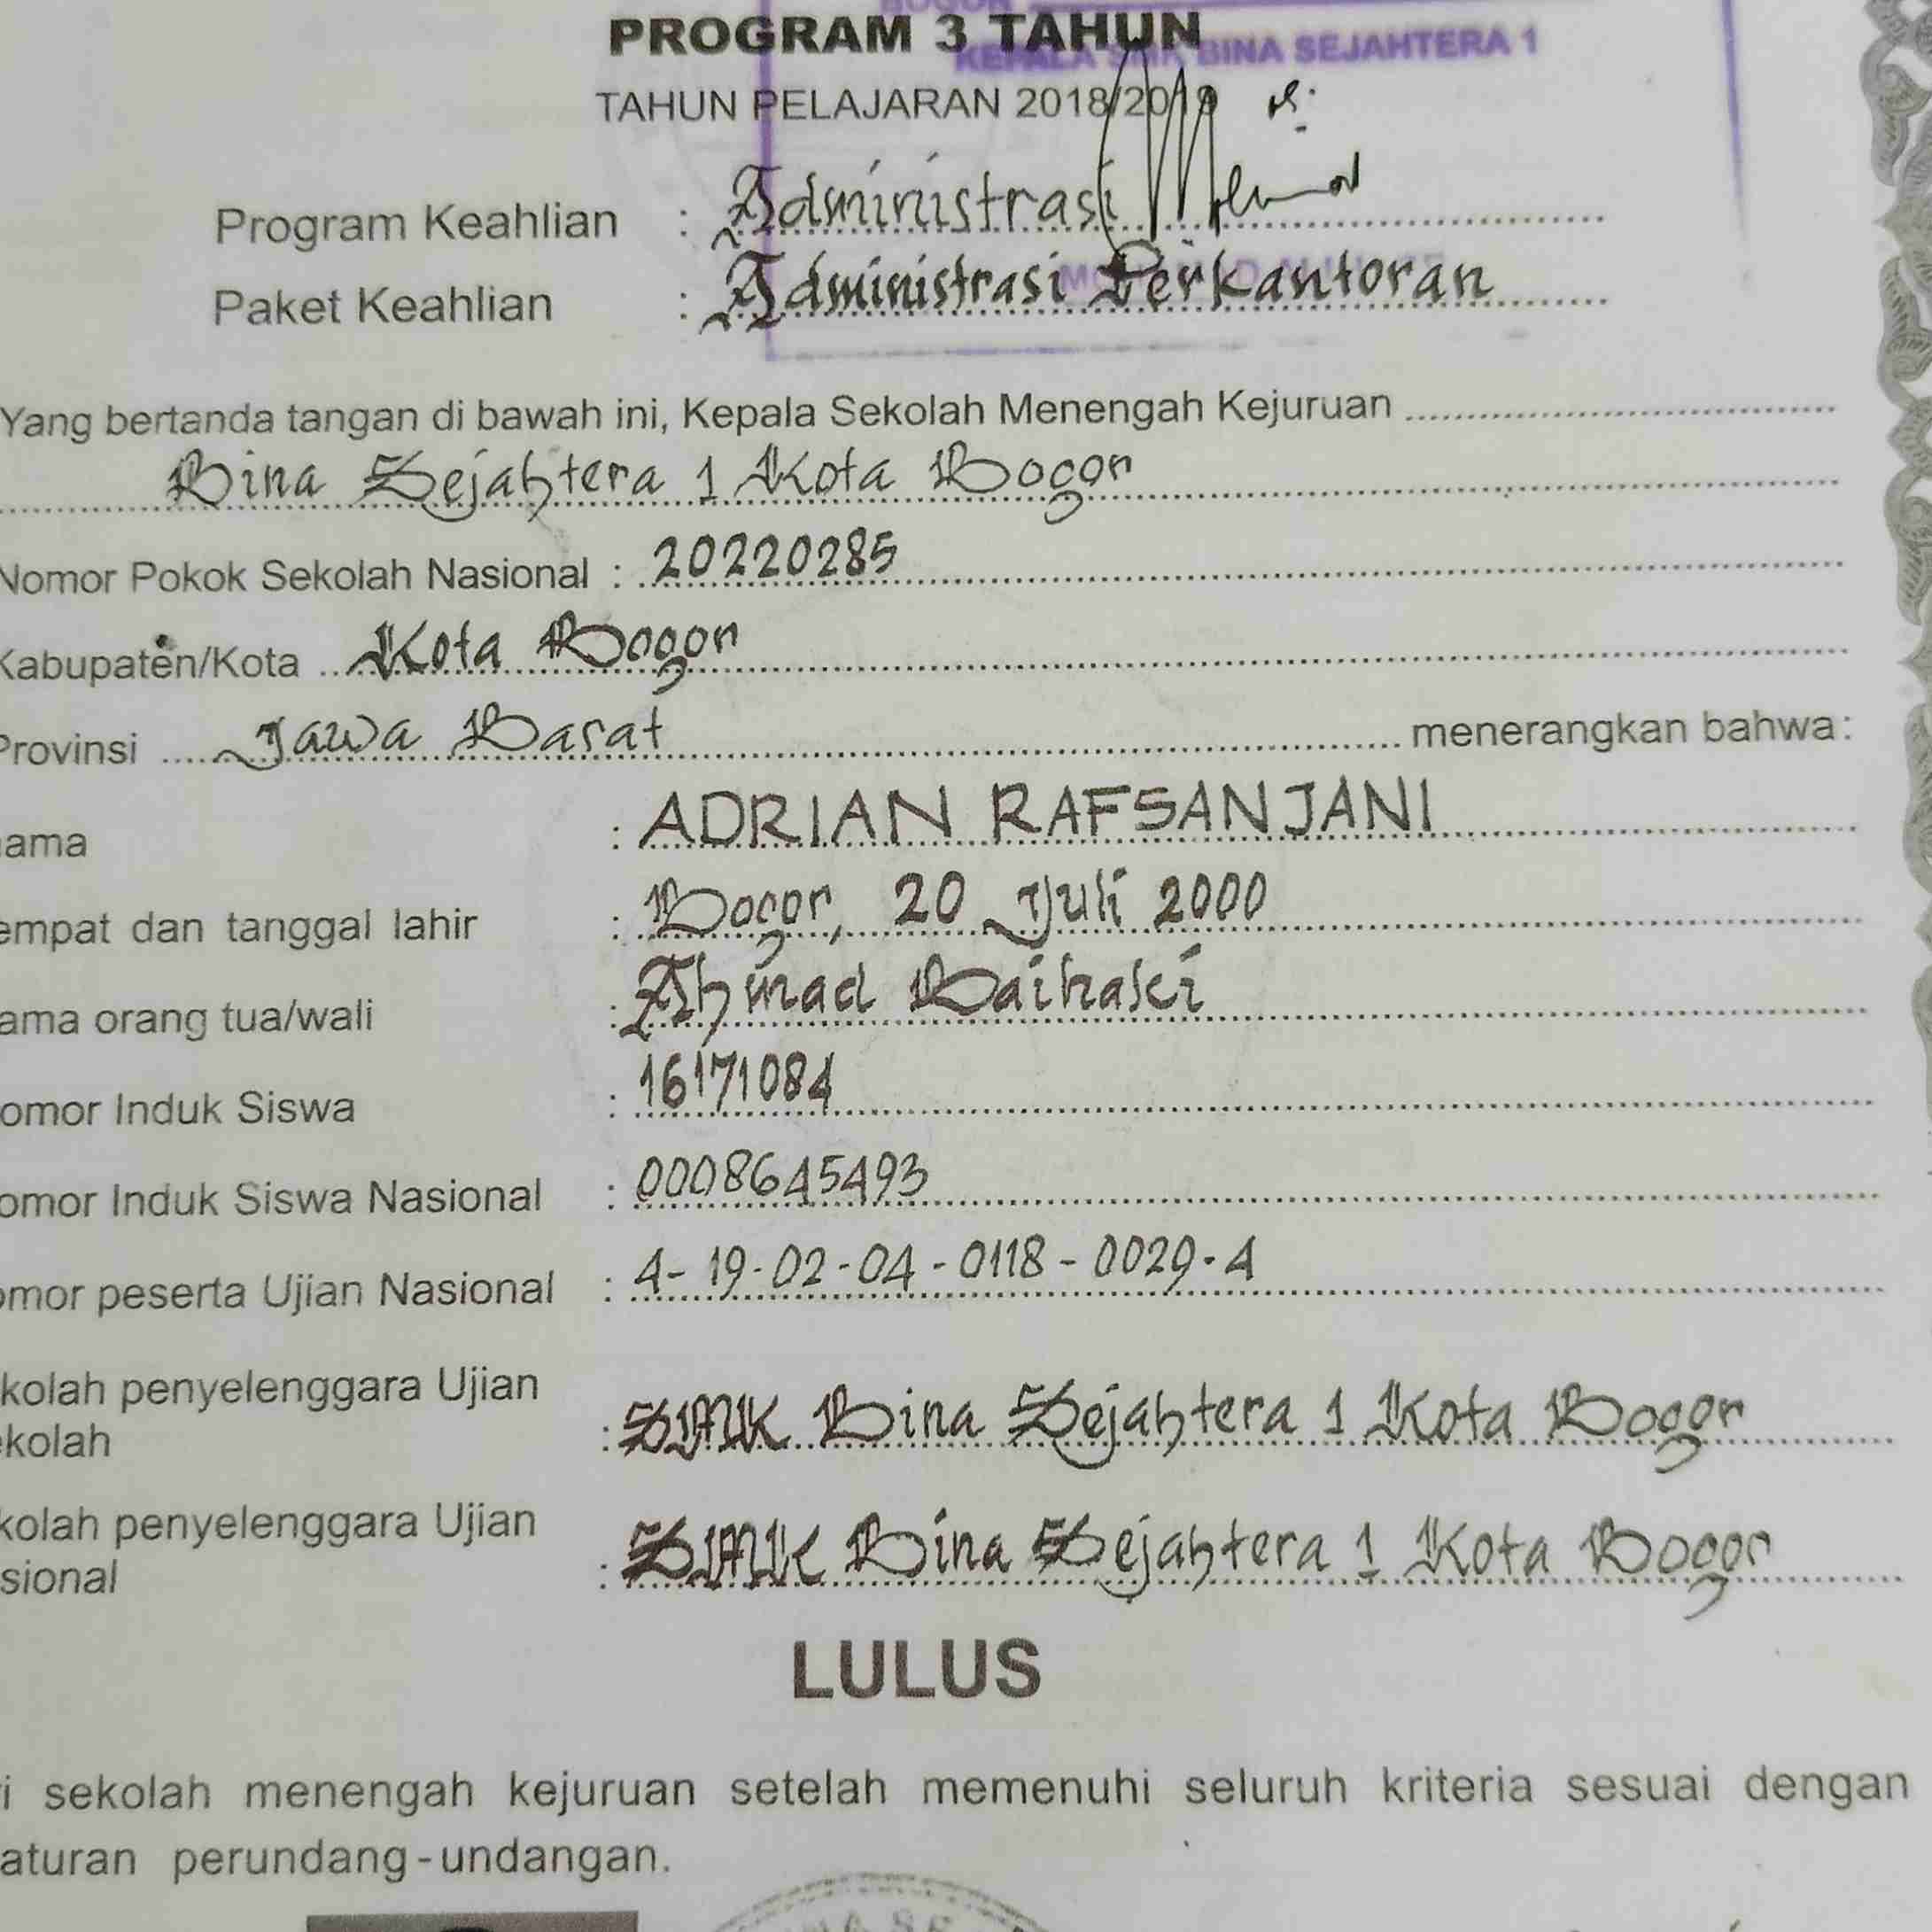 PROGRAM 3 TAHUN
KEPALA SMK BINA SEJAHTERA 1
TAHUN PELAJARAN 2018/2019
Program Keahlian : Administrasi
Paket Keahlian : Administrasi Perkantoran
Yang bertanda tangan di bawah ini, Kepala Sekolah Menengah Kejuruan
Bina Sejahtera 1 Kota Bogor
Nomor Pokok Sekolah Nasional : 20220285
Kabupaten/Kota Kota Bogor
Provinsi Jawa Barat menerangkan bahwa:
ama : ADRIAN RAFSANJANI
empat dan tanggal lahir : Bogor, 20 Juli 2000
ama orang tua/wali : Ahmad Baihaki
omor Induk Siswa : 16171084
omor Induk Siswa Nasional : 0008645493
omor peserta Ujian Nasional : 4-19-02-04-0118-0029-4
kolah penyelenggara Ujian
ekolah : SMK Bina Sejahtera 1 Kota Bogor
kolah penyelenggara Ujian
sional : SMK Bina Sejahtera 1 Kota Bogor
LULUS
i sekolah menengah kejuruan setelah memenuhi seluruh kriteria sesuai dengan
aturan perundang-undangan.